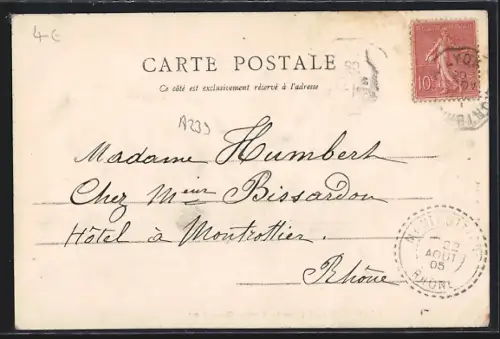 4€
CARTE POSTALE
Ce côté est exclusivement réservé à l'adresse
10
LYON
A239
Madame Humbert
Chez Mieur Bissardon
Hôtel à Montrottier.
Rhône
22
AOUT
05
RHONE